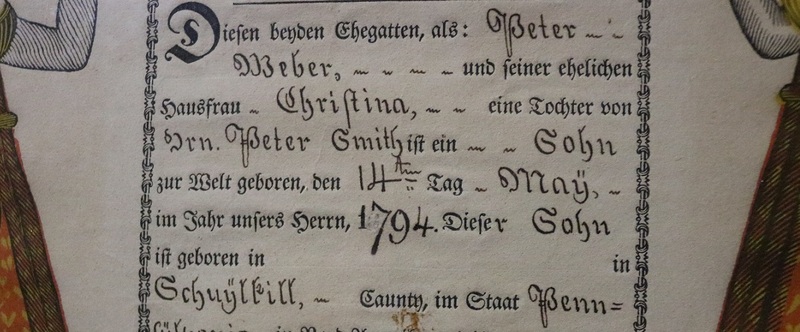 Diesen beyden Ehegatten, als: Peter
Weber, und seiner ehelichen
Hausfrau Christina, eine Tochter von
Hrn. Peter Smith ist ein Sohn
zur Welt geboren, den 14ten Tag May,
im Jahr unsers Herrn, 1794. Dieser Sohn
ist geboren in in
Schuÿlkill, Caunty, im Staat Penn=